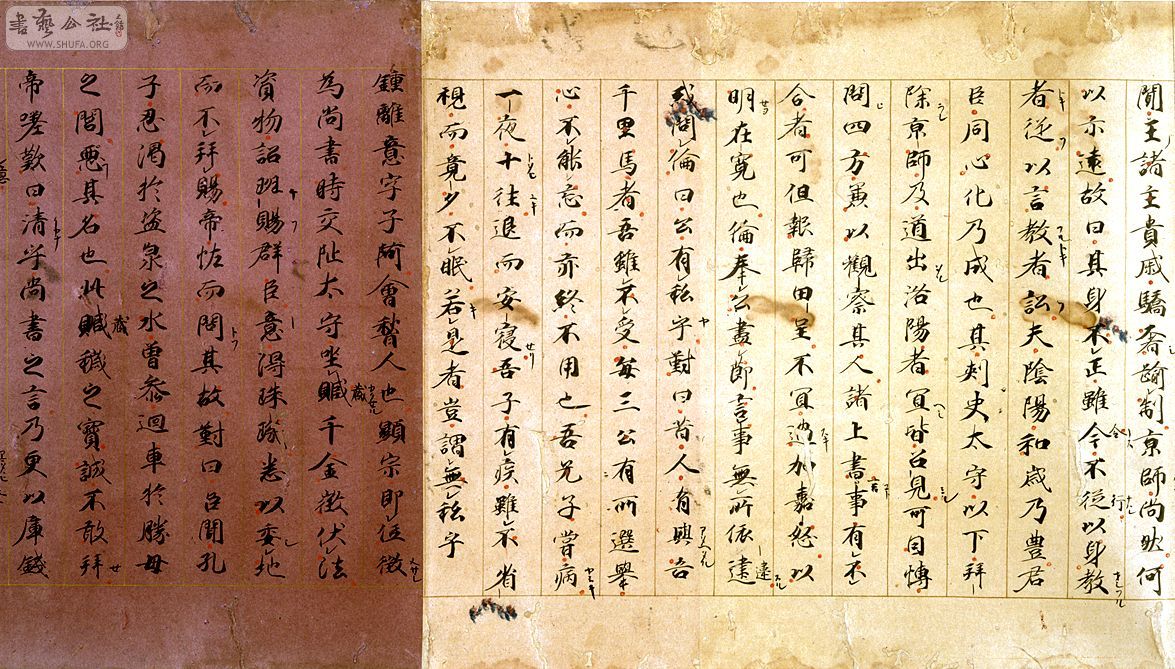 聞王諸主貴戚驕奢踰制京師尚然何
以示遠故曰其身不正雖令不從以身教
者從以言教者訟夫陰陽和歳乃豊君
臣同心化乃成也其刾史太守以下拜
除京師及道出洛陽者宜皆召見可因博
問四方兼以觀察其人諸上書事有不
合者可但報歸田里不宜過加嘉怒以
明在寛也倫奉公盡節言事無所依違
或問倫曰公有私乎對曰昔人有與吾
千里馬者吾雖不受毎三公有所選舉
心不能忘而亦終不用也吾兄子嘗病
一夜十往退而安寢吾子有疾雖不省
視而竟夕不眠若是者豈謂無私乎
鍾離意字子阿會稽人也顯宗即位徴
為尚書時交阯太守坐贓千金徴伏法
資物詔班賜群臣意得珠璣悉以委地
而不拜賜帝怪而問其故對曰臣聞孔
子忍渇於盜泉之水曾參迴車於勝母
之閭惡其名也此贓穢之寶誠不敢拜
帝嗟歎曰清乎尚書之言乃更以庫錢
書藝公社
WWW.SHUFA.ORG